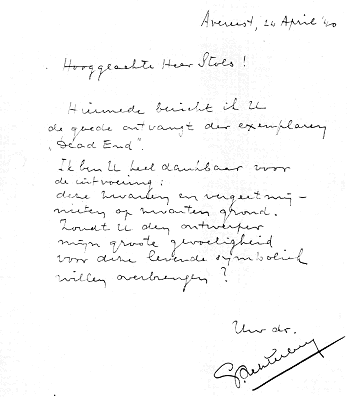 Avereest, 24 April '40
Hooggeachte Heer Stols!
Hiermede bericht ik U
de goede ontvangst der exemplaren
„Dead End".
Ik ben U heel dankbaar voor
de uitvoering:
deze zwanen en vergeetmij-
nieten op zwarten grond.
Zoudt U den ontwerper
mijn groote gevoeligheid
voor deze levende symboliek
willen overbrengen?
Uw dr.